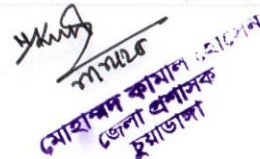 মোহাম্মদ কামাল হোসেন
জেলা প্রশাসক
চুয়াডাঙ্গা